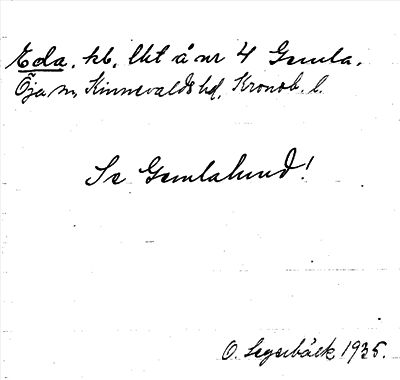 Eda. hb. lht å nr 4 Gemla.
Öja sn, Kinnevalds hd, Kronob. l.
Se Gemlalund!
O. Segerbäck 1935.